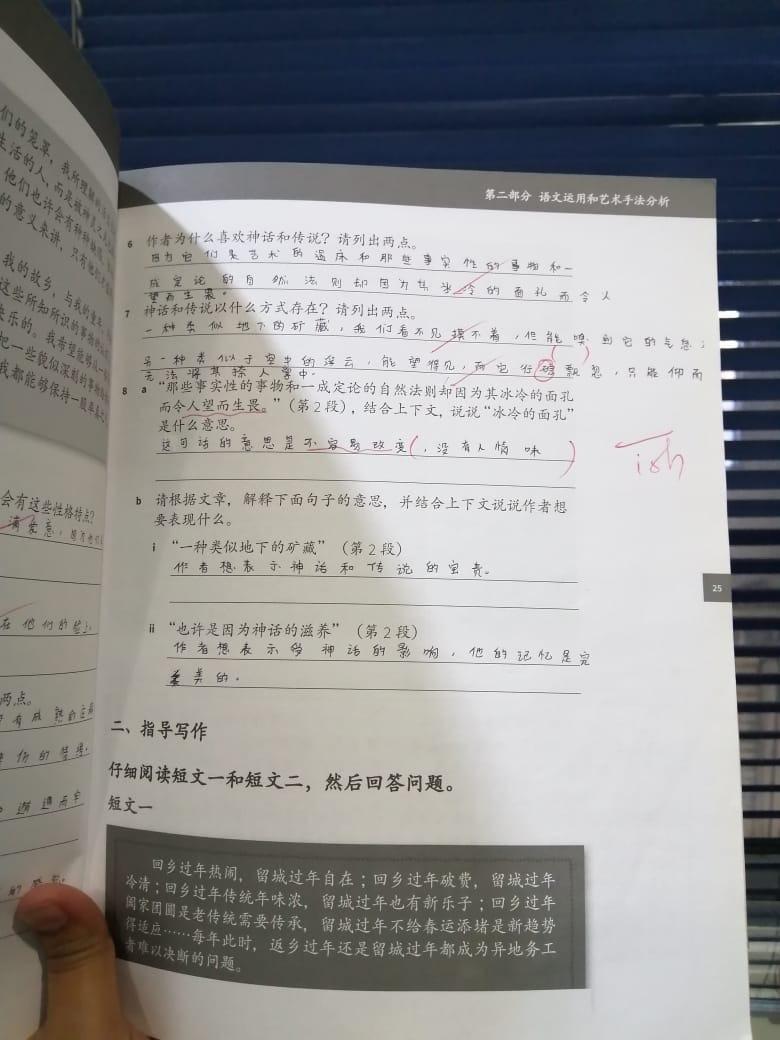 们的笼罩，我所理解的
生活的人，而是被神灵之
他们也许会有种种缺
的意义来讲，只有他们
我的故乡，与我的童年
这些所知所识的事物
乐的。我希望能够从一
把一些貌似深刻的事物
我都能够保持一颗率真之
会有这些性格特点？
满爱意，因为他们
在他们的脸上。
两点。
第二部分 语文运用和艺术手法分析
6 作者为什么喜欢神话和传说？请列出两点。
因为它们是艺术的温床和那些事实性的事物和一
成定论的自然法则却因为其冰冷的面孔而令人
望而生畏。
7 神话和传说以什么方式存在？请列出两点。
一种类似地下的矿藏，我们看不见摸不着，但能嗅到它的气息；
另一种类似于空中的浮云，能望得见，而它行踪飘忽，只能仰而
无法将其揽入掌中。
8 a “那些事实性的事物和一成定论的自然法则却因为其冰冷的面孔
而令人望而生畏。”（第2段），结合上下文，说说“冰冷的面孔”
是什么意思。
这句话的意思是不容易改变（，没有人情味）
ish
b 请根据文章，解释下面句子的意思，并结合上下文说说作者想
要表现什么。
i “一种类似地下的矿藏”（第2段）
作者想表示神话和传说的宝贵。
25
ii “也许是因为神话的滋养”（第2段）
作者想表示受神话的影响，他的记忆是完
美的。
二、指导写作
仔细阅读短文一和短文二，然后回答问题。
短文一
回乡过年热闹，留城过年自在；回乡过年破费，留城过年
冷清；回乡过年传统年味浓，留城过年也有新乐子；回乡过年
阖家团圆是老传统需要传承，留城过年不给春运添堵是新趋势
得适应……每年此时，返乡过年还是留城过年都成为异地务工
者难以决断的问题。